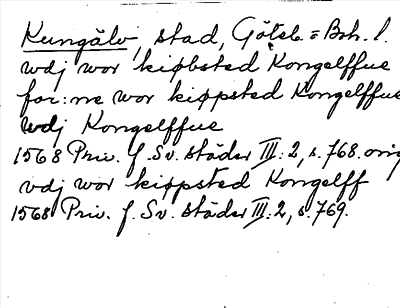 Kungälv, stad, Göteb. = Boh. l.
wdj wor kiøbsted Kongelffue
for:ne wor kiøpsted Kongelffue
wdj Kongelffue
1568 Priv. f. Sv. städer III: 2, s. 768. orig
vdj wor kiøpsted Kongelff
1568 Priv. f. Sv. städer III: 2, s. 769.